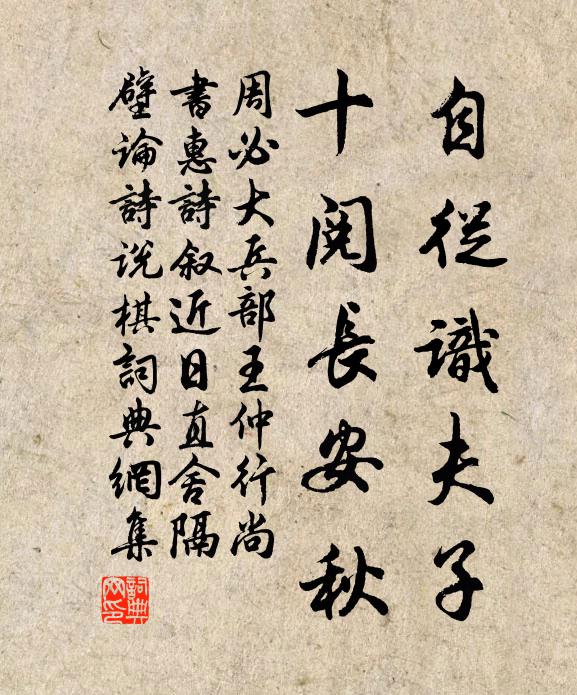 自從識夫子
十閱長安秋
周必大兵部王仲行尚
書惠詩叙近日直舍隔
壁論詩説棋詞典網集
詞典
网印